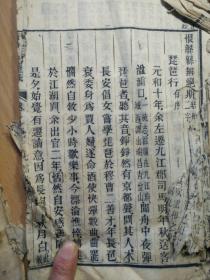 恨緜緜無絕期
琵琶行 有序
元和十年余左遷九江郡司馬明年秋送客
湓浦口聞舟中夜彈
琵琶者聽其音錚錚然有京都聲問其人本
長安倡女嘗學琵琶於穆曹二善才年長色
衰委身爲賈人婦遂命酒使快彈數曲曲罷
憫然自敘少小時歡樂事今漂淪憔悴
於江湖間余出官二年恬然自安感
是夕始覺有遷謫意因爲長